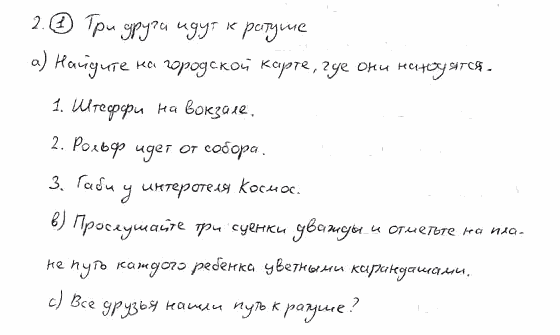 2. ① Три друга идут к ратуше
а) Найдите на городской карте, где они находятся.
1. Штеффи на вокзале.
2. Рольф идет от собора.
3. Габи у интеротеля Космос.
в) Прослушайте три сценки дважды и отметьте на пла-
не путь каждого ребенка цветными карандашами.
с) Все друзья нашли путь к ратуше?